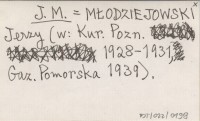 J. M. = MŁODZIEJOWSKI
Jerzy (w: Kur. Pozn.
1928-1931,
Gaz. Pomorska 1939).